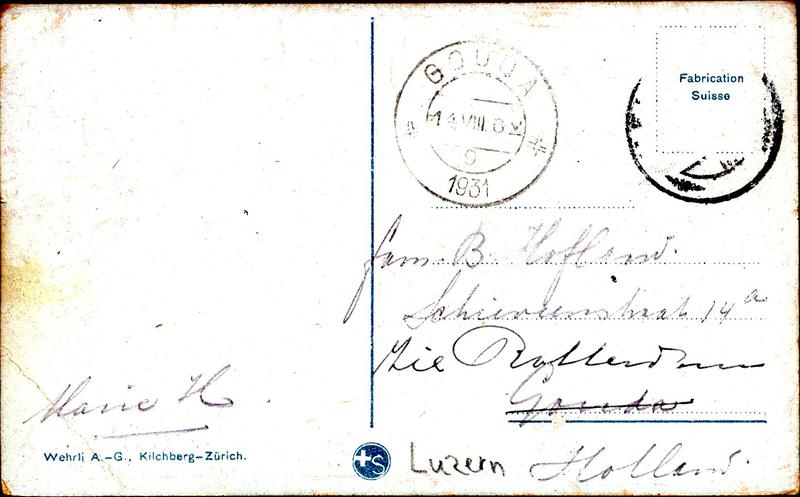 Fabrication
Suisse
GOUDA
14.VIII.8
1931
fam. B. Hofland.
14a
Zie Rotterdam
Gouda
Marie H.
Wehrli A.-G., Kilchberg-Zürich.
S
Luzern
Holland.